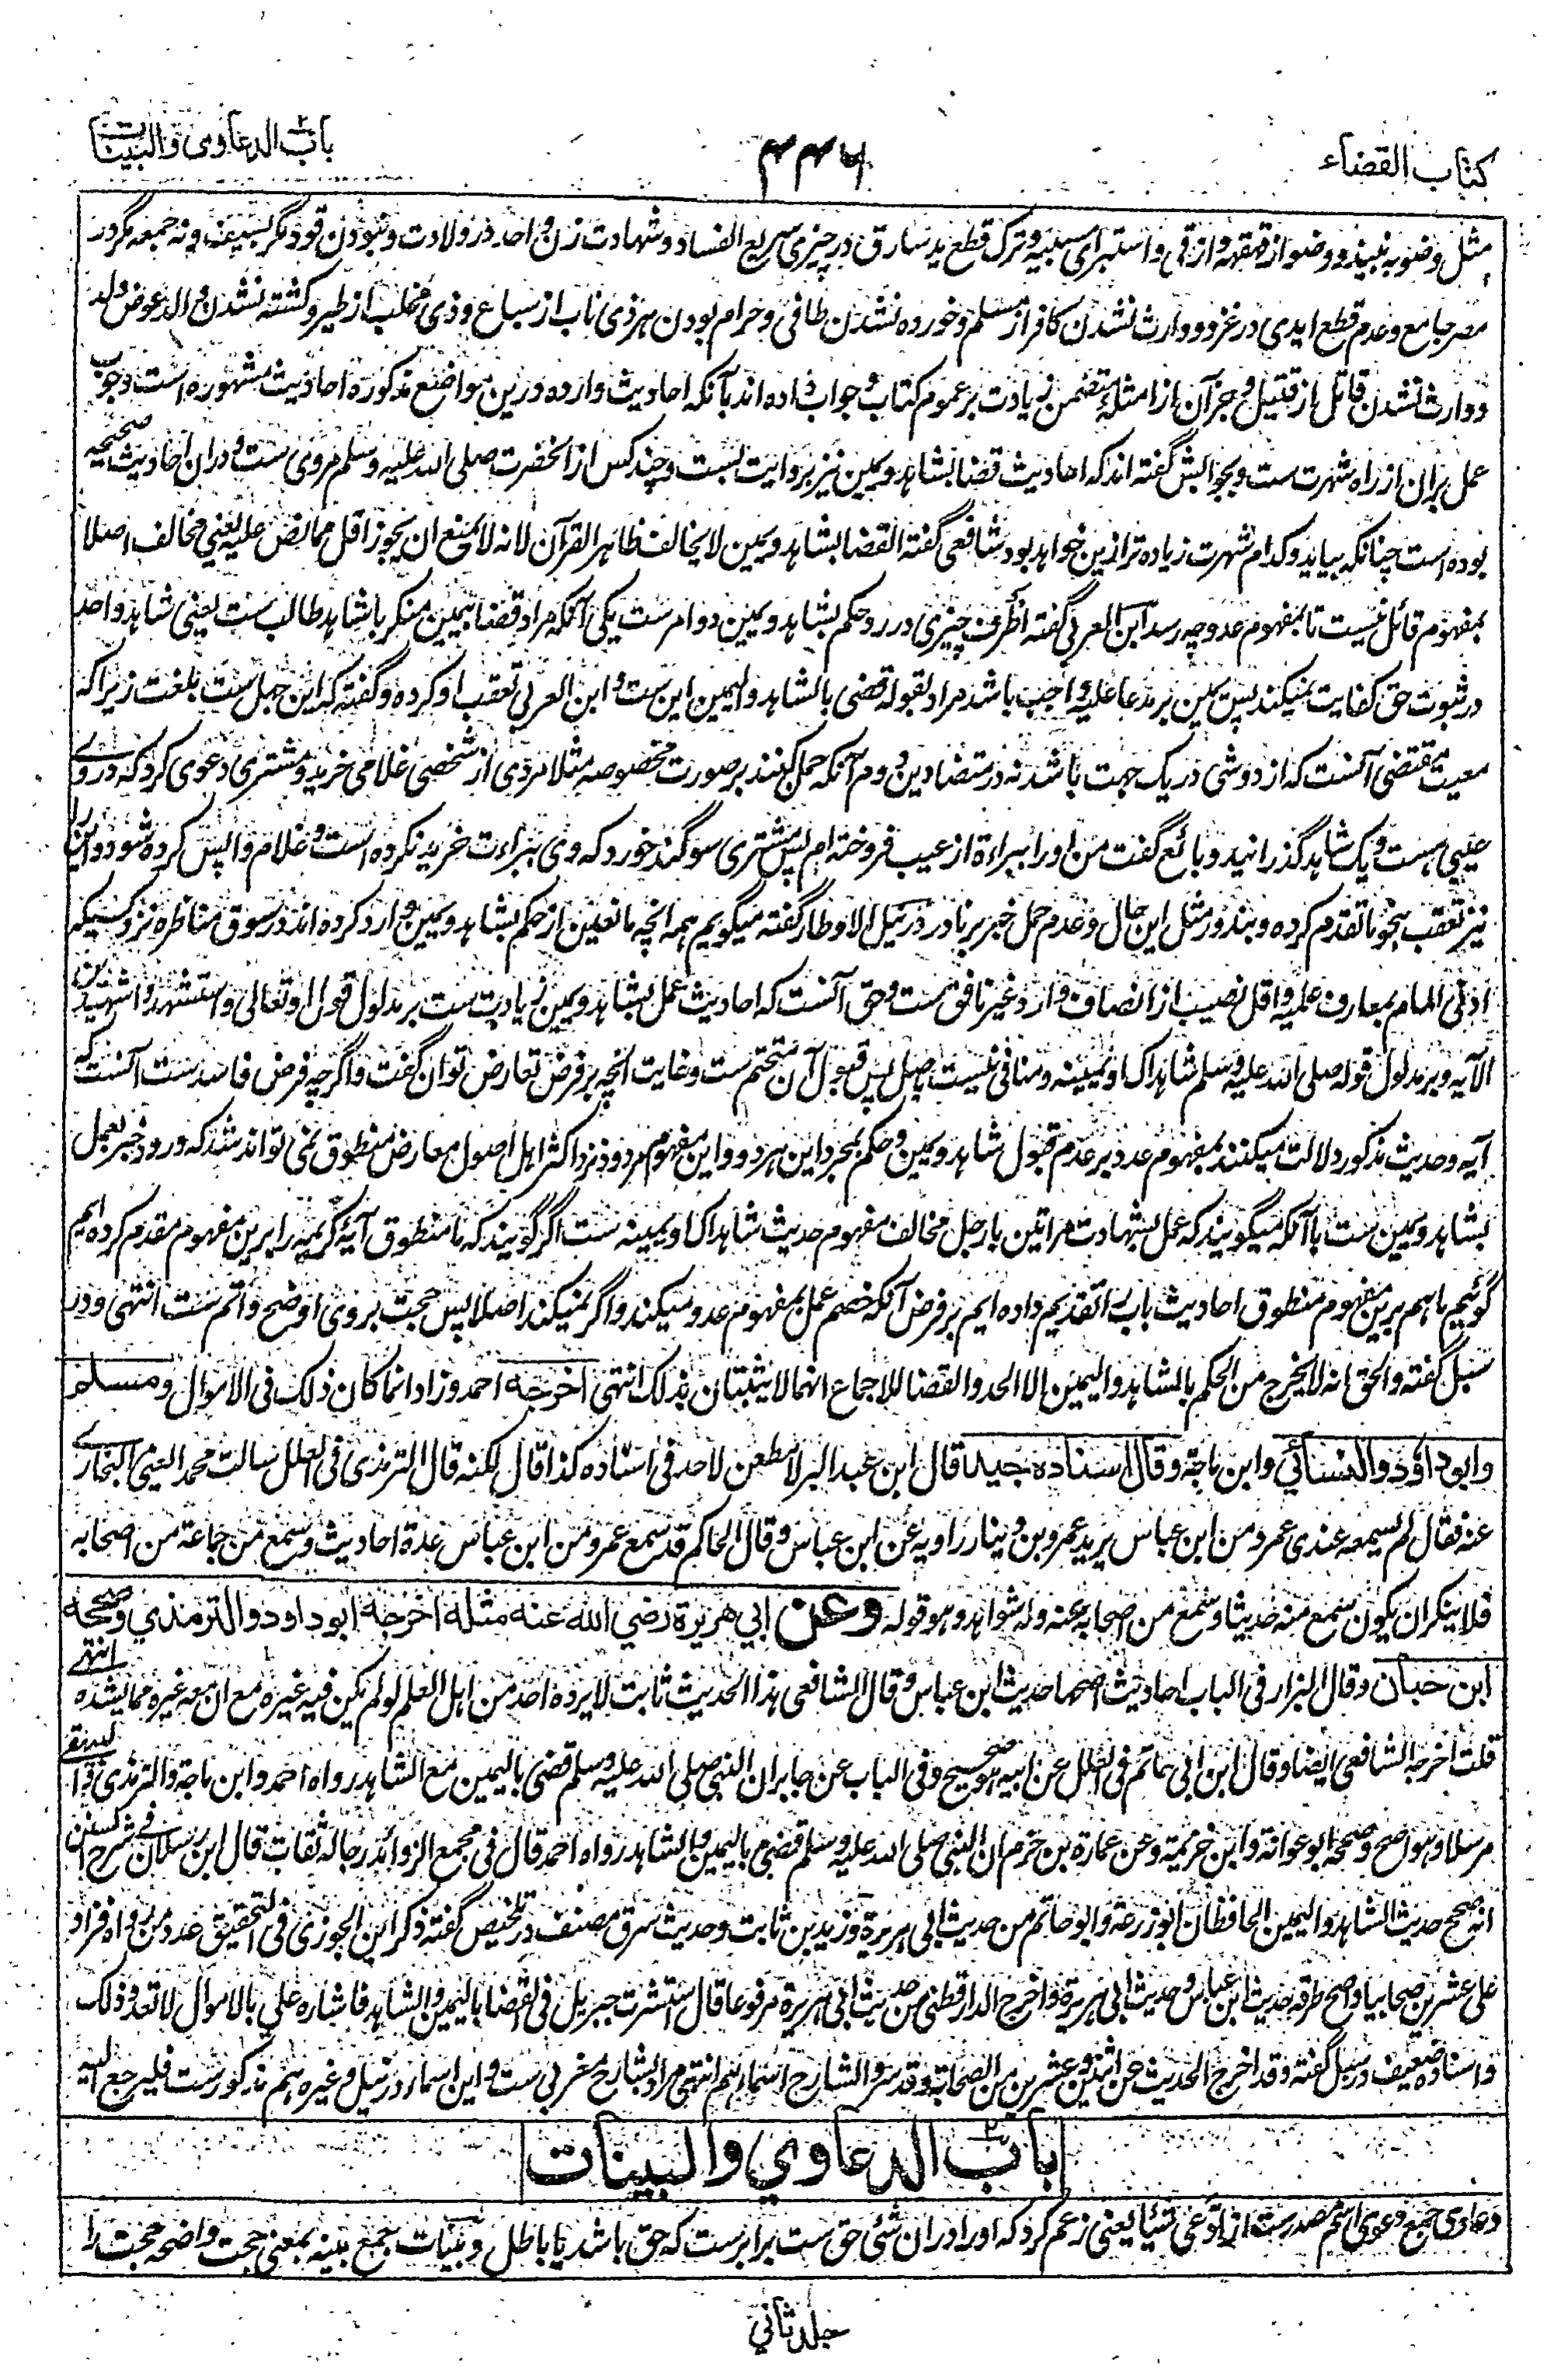 کتاب القضاء
۴۴۶
باب الدعاوی والبینات
مثل وضو به نبیذ و وضو از قهقهه و از قی و استبرای مسبیه و ترک قطع ید سارق در چیزی سریع الفساد و شهادت زن واحد در ولادت و نبودن قود مگر بسیف و نه جمعه مگر در
مصر جامع و عدم قطع ایدی در غزو و وارث نشدن کافر از مسلم و خورده نشدن طافی و حرام بودن هر ذی ناب از سباع و ذی مخلب از طیر و کشته نشدن والد عوض ولد
و وارث نشدن قاتل از قتیل و جز آن از امثلهٔ متضمن زیادت بر عموم کتاب و جواب داده اند بآنکه احادیث وارده درین مواضع مذکوره احادیث مشهوره است و وجوب
عمل بران از راه شهرت ست و بجوابش گفته اند که احادیث قضا بشاهد و یمین نیز بروایت بست و چند کس از آنحضرت صلی الله علیه وسلم مروی ست و دران احادیث صحیحه
بوده است چنانکه بیاید و کدام شهرت زیاده تر ازین خواهد بود شافعی گفته القضا بشاهد و یمین لا یخالف ظاهر القرآن لانه لا یمنع ان یجوز اقل مما نص علیه یعنی مخالف اصلا
بمفهوم قائل نیست تا بمفهوم عدد چه رسد ابن العربی گفته اظرف چیزی در رد حکم بشاهد و یمین دو امر ست یکی آنکه مراد قضا بیمین منکر با شاهد طالب ست یعنی شاهد واحد
در ثبوت حق کفایت نمیکند پس یمین بر مدعا علیه واجب باشد مراد بقوله قضی بالشاهد والیمین این ست و ابن العربی تعقب او کرده و گفته که این جهل ست بلغت زیرا که
معیت مقتضی آنست که از دو شی در یک جهت باشد نه در متضادین دوم آنکه حمل کنند بر صورت مخصوصه مثلا مردی از شخصی غلامی خرید و مشتری دعوی کرد که در وی
عیبی هست و یک شاهد گذرانید و بائع گفت من او را ببراءة از عیب فروخته ام پس مشتری سوگند خورد که وی ببراءت خرید نکرده است و غلام واپس کرده شود و این را
نیز تعقب بنحو ما تقدم کرده و بندور مثل این حال و عدم حمل خبر بر نادر در نیل الاوطار گفته میگویم همه آنچه مانعین از حکم بشاهد و یمین وارد کرده اند در سوق مناظره نزد کسیکه
ادنی المام بمعارف علمیه و اقل نصیب از انصاف دارد غیر نافق ست و حق آنست که احادیث عمل بشاهد و یمین زیادت ست بر مدلول قوله تعالی واستشهدوا شهیدین
الآیه و بر مدلول قوله صلی الله علیه وسلم شاهداک او یمینه و منافی نیست باصل پس قبول آن متحتم ست و غایت آنچه بر فرض تعارض توان گفت و اگرچه فرض فاسد ست آنست که
آیه و حدیث مذکور دلالت میکنند بمفهوم عدد بر عدم قبول شاهد و یمین و حکم بمجرد این هر دو و این مفهوم مردود نزد اکثر اهل اصول معارض منطوق نمی تواند شد که ورود خبر بعمل
بشاهد و یمین ست با آنکه میگویند که عمل بشهادت مراتین با رجل مخالف مفهوم حدیث شاهداک او یمینه ست اگر گویند که ما منطوق آیهٔ کریمه را برین مفهوم مقدم کرده ایم
گوئیم ما هم برین مفهوم منطوق احادیث باب را تقدیم داده ایم بر فرض آنکه خصم عمل بمفهوم عدد میکند و اگر نمیکند اصلا پس حجت بر وی اوضح و اتم ست انتهی و در
سبل گفته والحق انه لا یخرج من الحکم بالشاهد والیمین الا الحد والقصاص للاجماع انهما لا یثبتان بذلک انتهی اخرجه احمد وزاد انما کان ذلک فی الاموال ومسلم
وابوداود والنسائی وابن ماجة وقال اسناده جید قال ابن عبد البر لا مطعن لاحد فی اسناده کذا قال لکنه قال الترمذی فی العلل سالت محمد العینی البخاری
عنه فقال لم یسمعه عندی عمرو من ابن عباس یرید عمرو بن دینار راویه عن ابن عباس وقال الحاکم قد سمع عمرو من ابن عباس عدة احادیث وسمع من جماعة من اصحابه
فلا ینکر ان یکون سمع منه حدیثا وسمع من اصحابه عنه وله شواهد وهو قوله وعن ابی هریرة رضی الله عنه مثله اخرجه ابوداود والترمذی وصححه
ابن حبان وقال البزار فی الباب احادیث اصحها حدیث ابن عباس وقال الشافعی هذا الحدیث ثابت لا یرده احد من اهل العلم لو لم یکن فیه غیره مع ان معه غیره مما یشده انتهی
قلت اخرجه الشافعی ایضا وقال ابن ابی حاتم فی العلل عن ابیه هو صحیح وفی الباب عن جابر ان النبی صلی الله علیه وسلم قضی بالیمین مع الشاهد رواه احمد وابن ماجة والترمذی والبیهقی
مرسلا وهو اصح وصححه ابو عوانة وابن خزیمة وعن عمارة بن حزم ان النبی صلی الله علیه وسلم قضی بالیمین والشاهد رواه احمد قال فی مجمع الزوائد رجاله ثقات قال ابن رسلان فی شرح السنن
انه صحح حدیث الشاهد والیمین الحافظان ابوزرعة وابوحاتم من حدیث ابی هریرة وزید بن ثابت وحدیث سرق مصنف در تلخیص گفته ذکر ابن الجوزی فی التحقیق عدد من رواه فزاد
علی عشرین صحابیا واصح طرقه حدیث ابن عباس وحدیث ابی هریرة واخرج الدارقطنی من حدیث ابی هریرة مرفوعا قال استشرت جبریل فی القضا بالیمین والشاهد فاشار علی بالاموال لا تعد ذلک
واسناده ضعیف در سبل گفته وقد اخرج الحدیث عن اثنین وعشرین من الصحابة وقد سرد الشارح اسماءهم انتهی مراد بشارح مغربی ست و این اسماء در نیل و غیره هم مذکور ست فلیرجع الیه
باب الدعاوی والبینات
دعاوی جمع دعوی اسم مصدر ست از ادعی شیئا یعنی زعم کرد که او را دران شئی حق ست برابر ست که حق باشد یا باطل و بینات جمع بینه بمعنی حجت واضحه حجت را
جلد ثانی